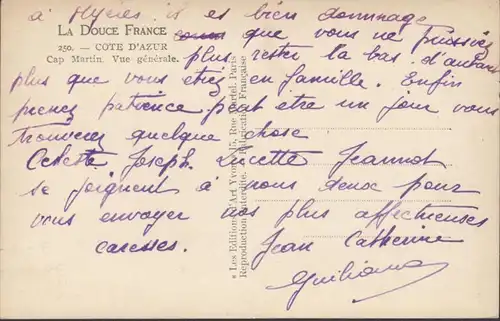 à Hyères il est bien dommage
LA DOUCE FRANCE
que vous ne puissiez
250. — COTE D'AZUR
Cap Martin. Vue générale.
plus rester la bas. d'autant
plus que vous étiez en famille. Enfin
prenez patience peut etre un jour vous
trouverez quelque chose
Celeste Joseph. Lucette Jeannot
se joignent à nous deux pour
vous envoyer nos plus affectueuses
caresses. Jean Catherine
Giuliana
« Les Editions d'Art Yvon », 15, Rue Martel, Paris
Reproduction interdite. Fabrication Française